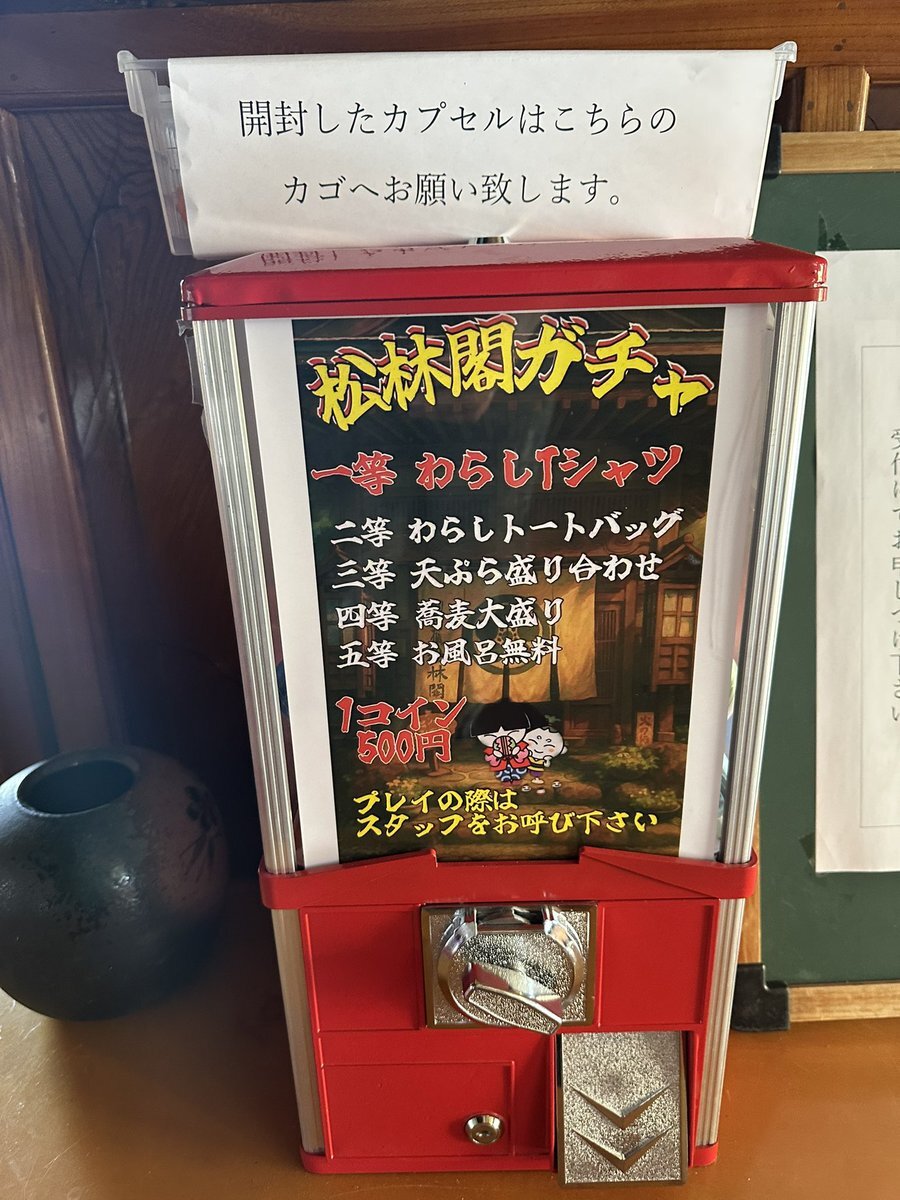 開封したカプセルはこちらの
カゴへお願い致します。
松林閣ガチャ
一等 わらしTシャツ
二等 わらしトートバッグ
三等 天ぷら盛り合わせ
四等 蕎麦大盛り
五等 お風呂無料
林閣
1コイン
500円
プレイの際は
スタッフをお呼び下さい
受付けでお申しつけ下さい